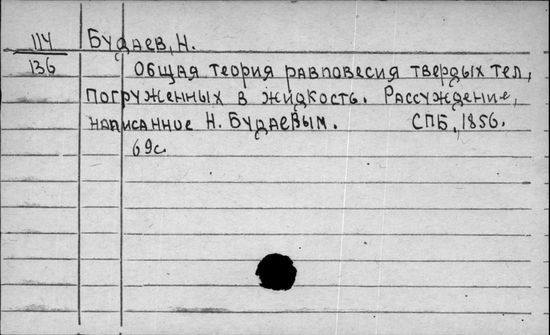 114 Будаев, Н.
136 Общая теория равновесия твердых тел,
погруженных в жидкость. Рассуждение,
написанное Н. Будаевым. СПБ, 1856.
69с.